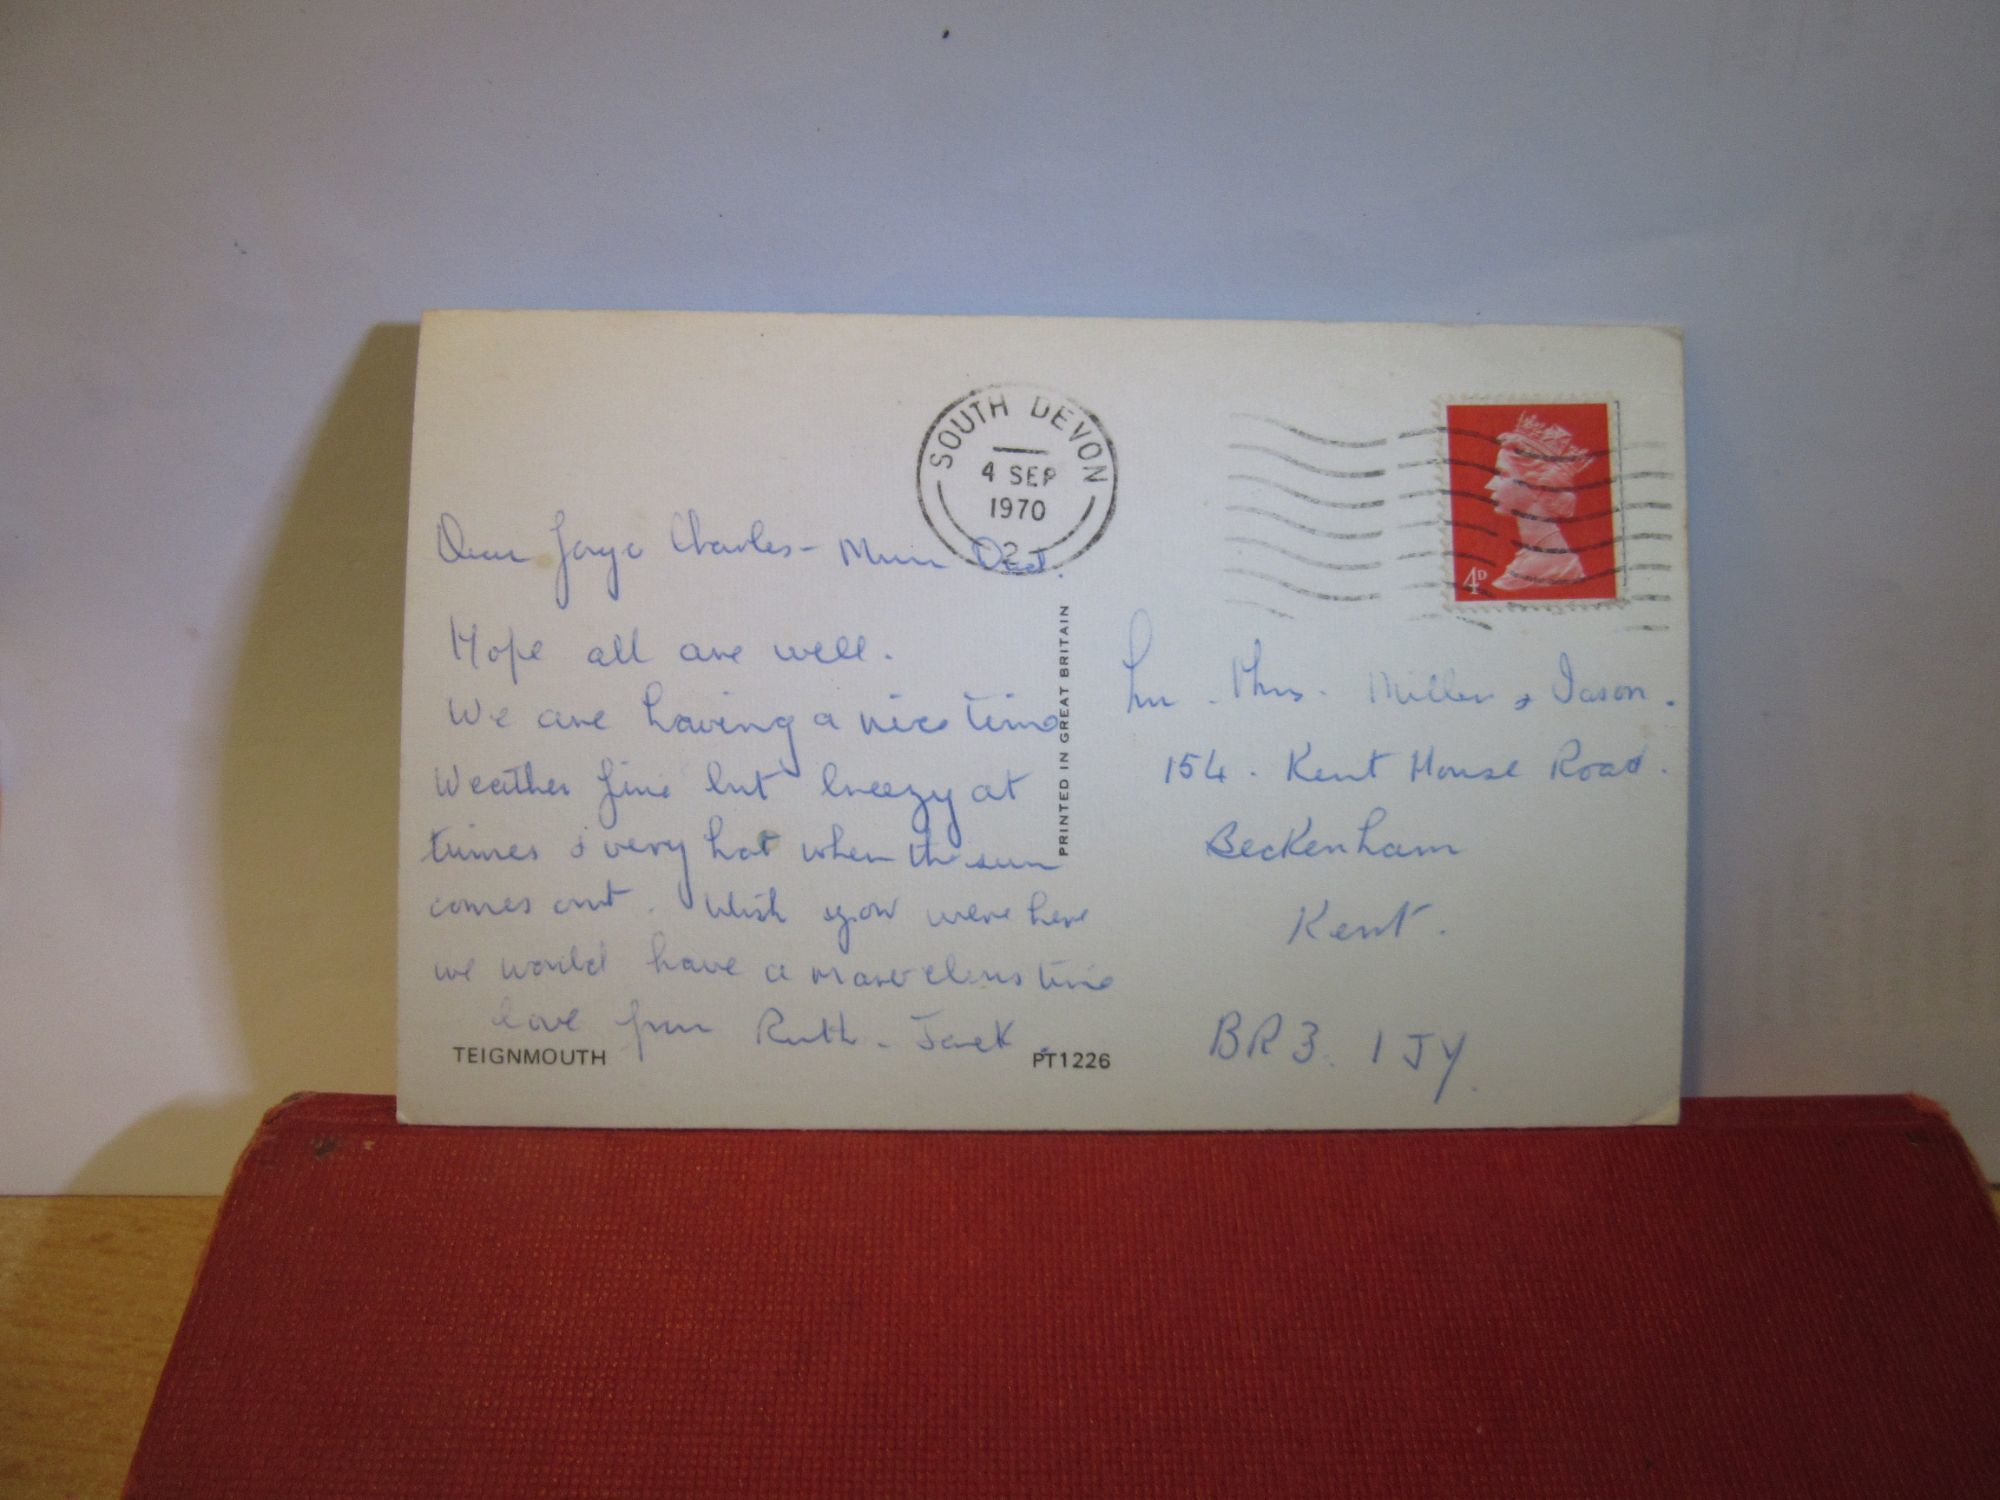 SOUTH DEVON
4 SEP
1970
2
4D
Dear Joyce Charles - Mum Dad.
Hope all are well.
We are having a nice time
Weather fine but breezy at
times & very hot when the sun
comes out. Wish you were here
we would have a marvelous time
love from Ruth - Jack.
TEIGNMOUTH
PT1226
PRINTED IN GREAT BRITAIN
Mr. Mrs. Miller & Jason.
154. Kent House Road.
Beckenham
Kent.
BR3. 1JY.